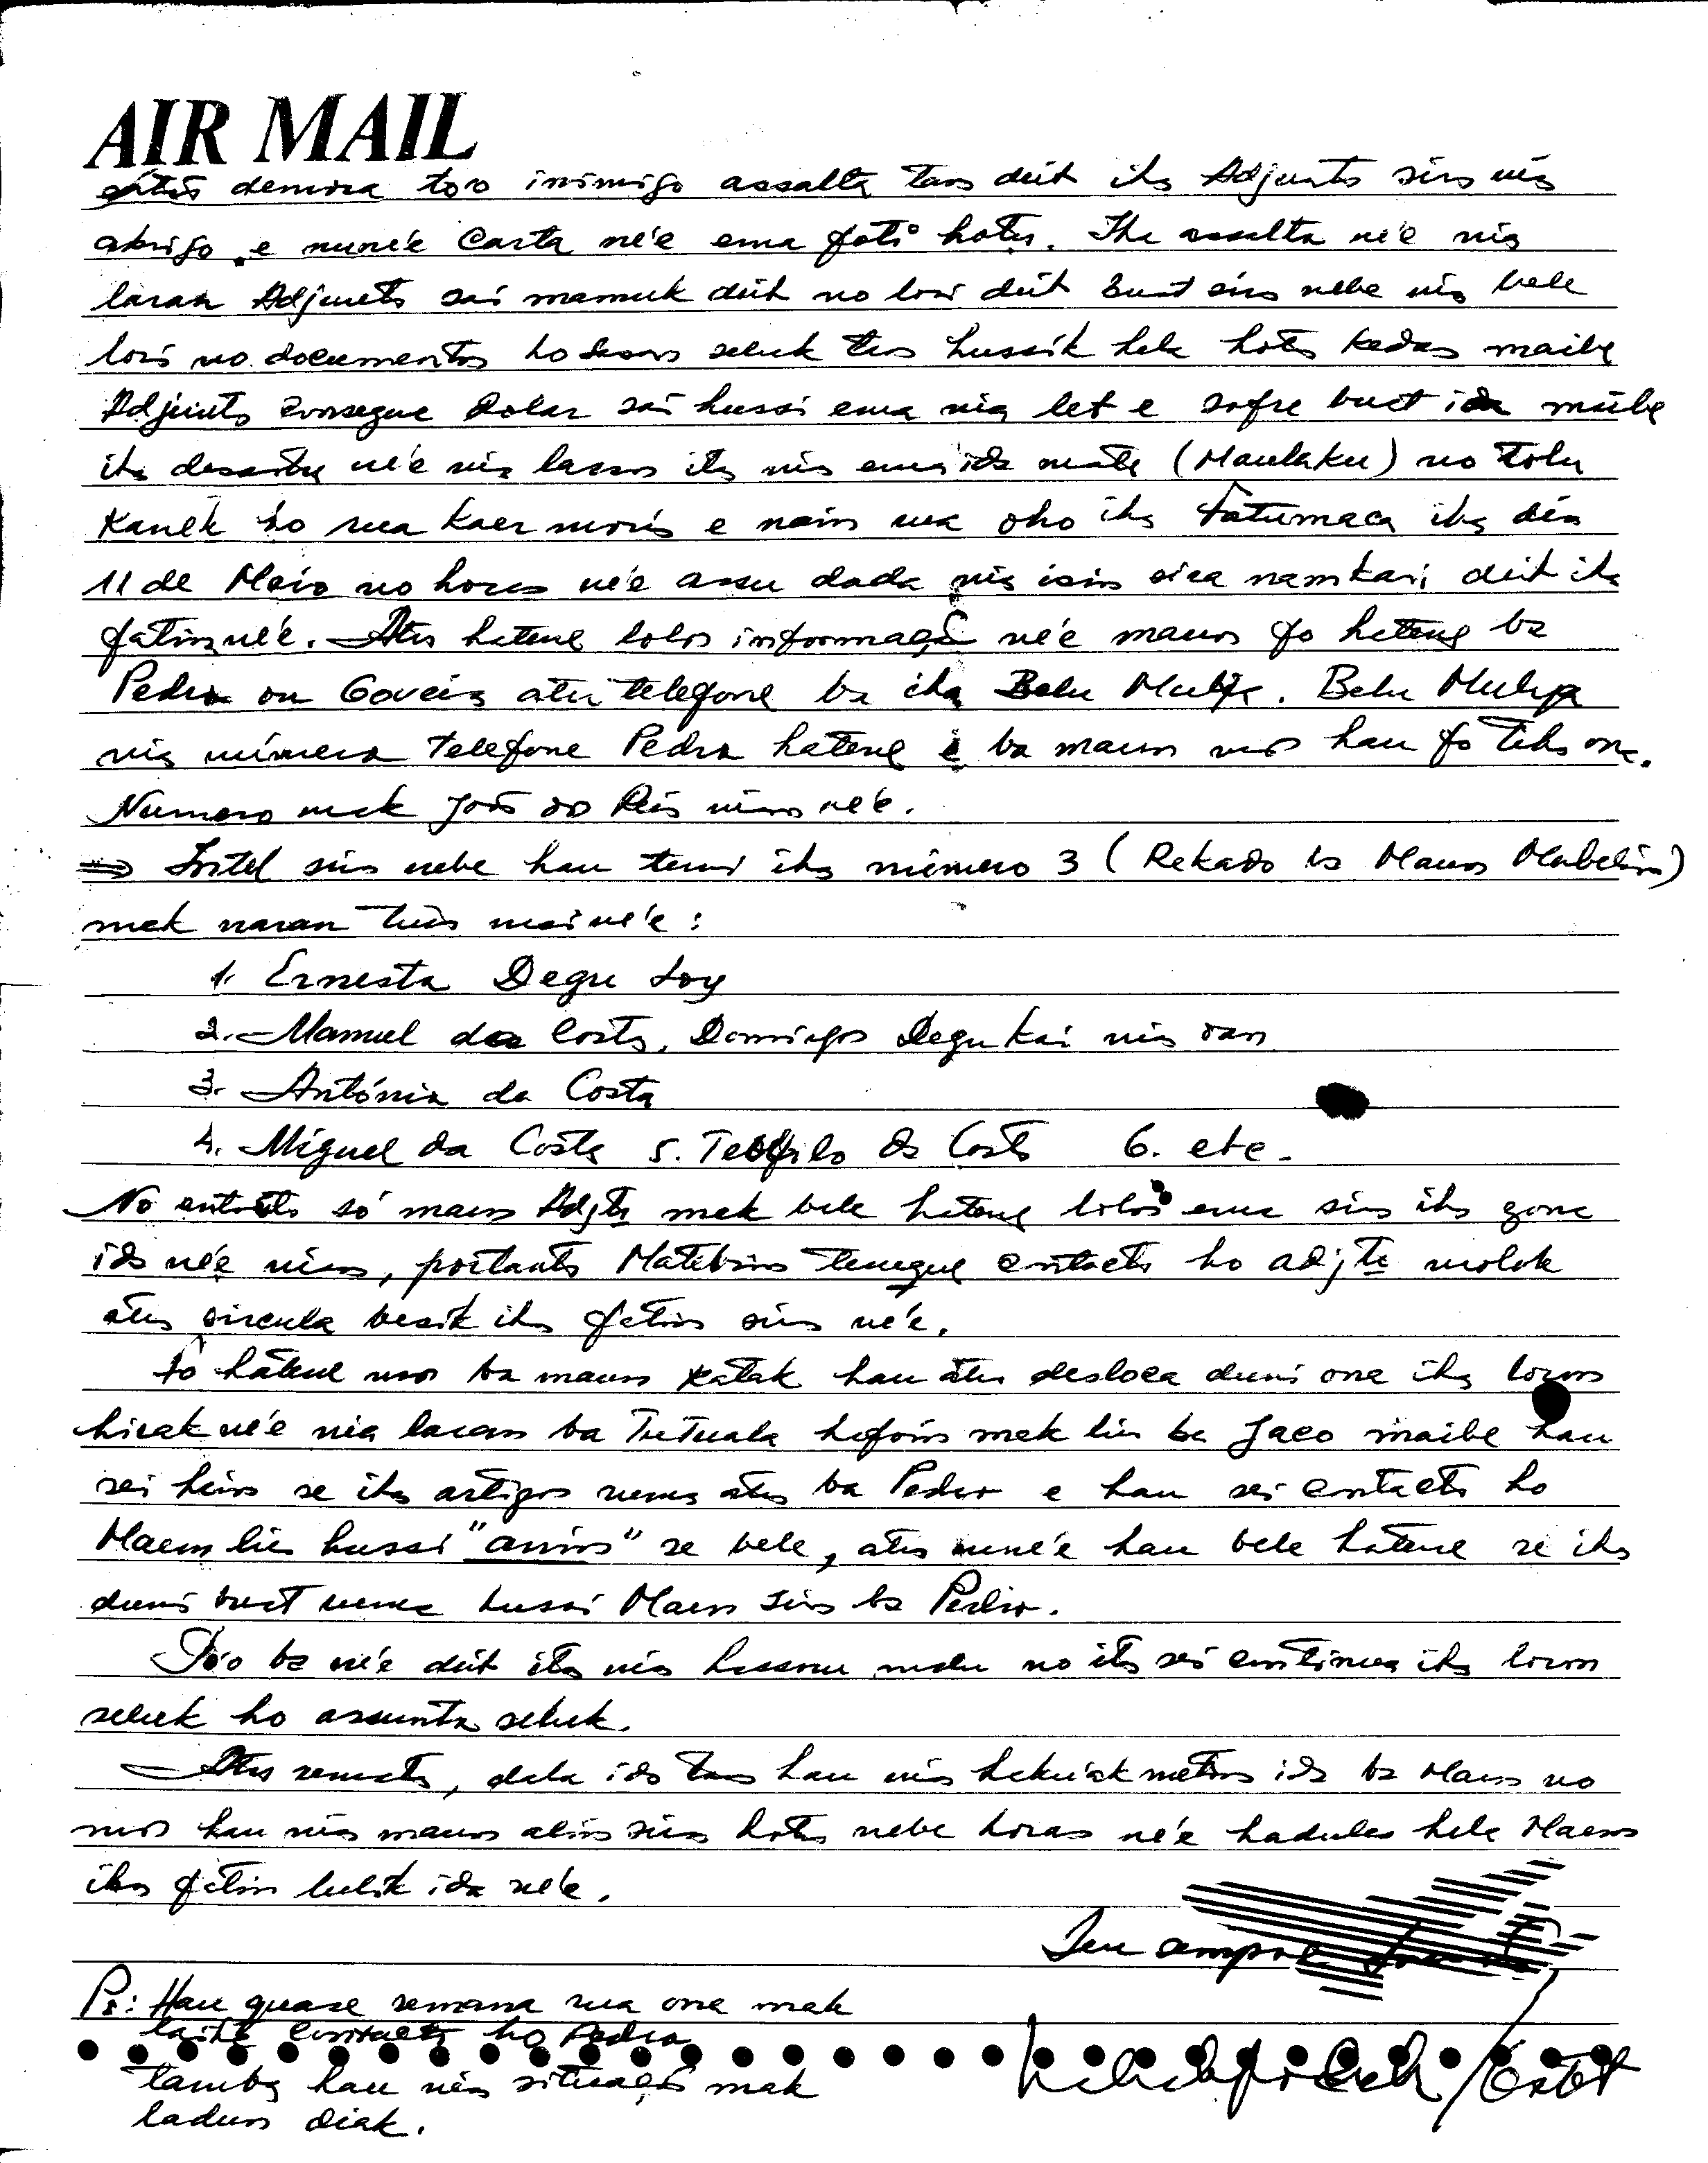 AIR MAIL
demora too inimigo assalta tan deit iha Adjunto sira nia
abrigo e mune'e Carta ne'e ema foti hotu. Iha assalta ne'e nia
laran Adjunto sai mamuk deit no lori deit buat sira nebe nia bele
lori no documentos ho seluk tan hussik hela hotu kedas maibe
Adjunto consegue dolar sai hussi ema nia let e sofre buat ida maibe
iha desastre ne'e nia laran ita nia ema ida mate (Maulaku) no tolu
Kanek ho rua kaer moris e nain rua oho iha Fatumaca iha dia
11 de Maio no horas ne'e assu dada nia isin sira namkari deit iha
fatin ne'e. Atu hatene lolos informação ne'e maun fo hatene ba
Pedro ou Goveia atu telefone ba iha Belu Mulya. Belu Mulya
nia número telefone Pedro hatene e ba maun mos hau fo tiha ona.
Numero mak João do Reis nian ne'e.
⇒ Fretel sira nebe hau temi iha número 3 (Rekado ba Maun Mabelin)
mak naran tuir mai ne'e:
1. Ernesta Degu Loy
2. Manuel da Costa, Domingos Degu Kai nia oan
3. António da Costa
4. Miguel da Costa 5. Teófilo da Costa 6. etc.
No entanto só maun Adjto mak bele hatene lolos ema sira iha zona
ida ne'e nian, portanto Matebian tenque contacto ho adjto molok
atu circula besik iha fatin sira ne'e.
Fo hatene mos ba maun katak hau atu desloca duni ona iha loron
hirak ne'e nia laran ba Tutuala hafoin mak liu ba Jaco maibe hau
sei hein se iha artigos ruma atu ba Pedro e hau sei contacto ho
Maun liu hussi "anin" se bele, atu mune'e hau bele hatene se iha
duni buat ruma hussi Maun sira ba Pedro.
To'o ba ne'e deit ita nia hassoru malu no ita sei continua iha loron
seluk ho assunto seluk.
Atu remata, dala ida tan hau nia hakuak metin ida ba Maun no
mos hau nia maun alin sira hotu nebe horas ne'e hadulas hela Maun
iha fatin lulik ida ne'e.
Seu sempre
Ps: Hau quase semana rua ona mak
laiha contacto ho Pedro
tamba hau nia situação mak
ladun diak.